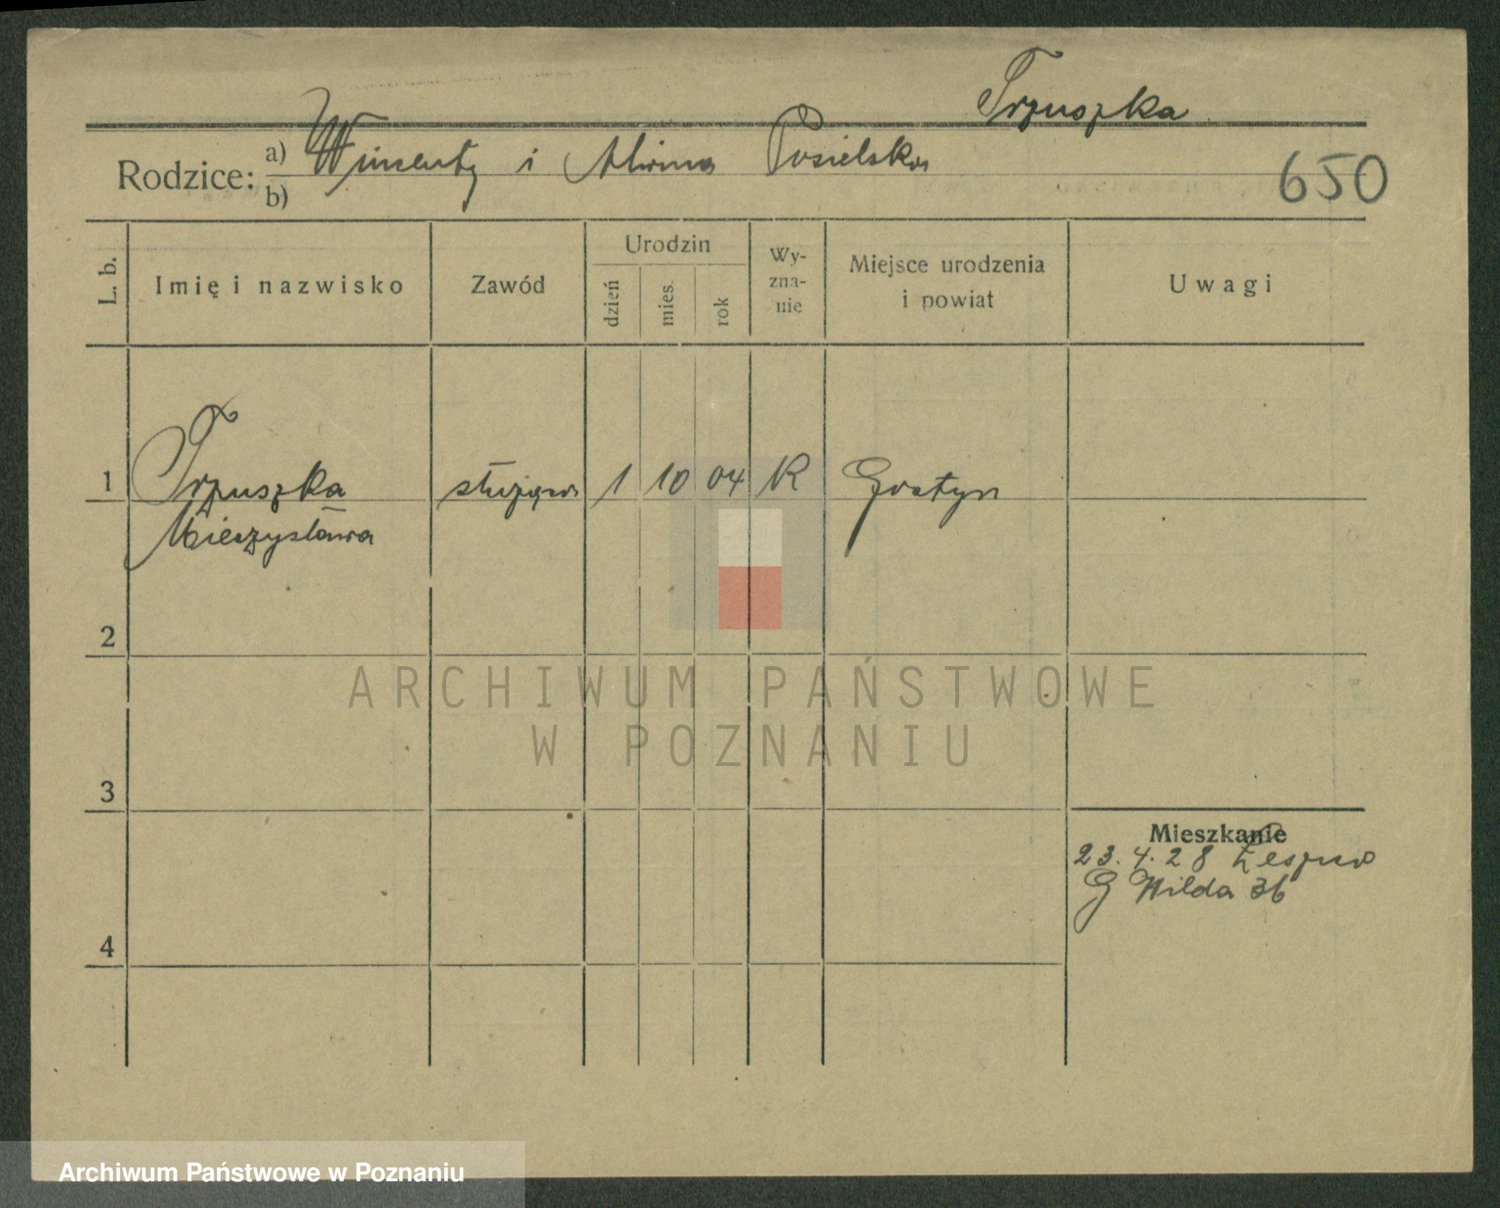 Trzuszka
Rodzice: a) Wincenty i Alwina Posielska
b)
650
L. b.
Imię i nazwisko
Zawód
Urodzin
dzień
mies.
rok
Wy-
zna-
nie
Miejsce urodzenia
i powiat
Uwagi
1 Trzuszka służąca 1 10 04 K Gostyn
Mieczysława
2
ARCHIWUM PAŃSTWOWE
W POZNANIU
3
Mieszkanie
23.4.28
G Wilda 36
4
Archiwum Państwowe w Poznaniu